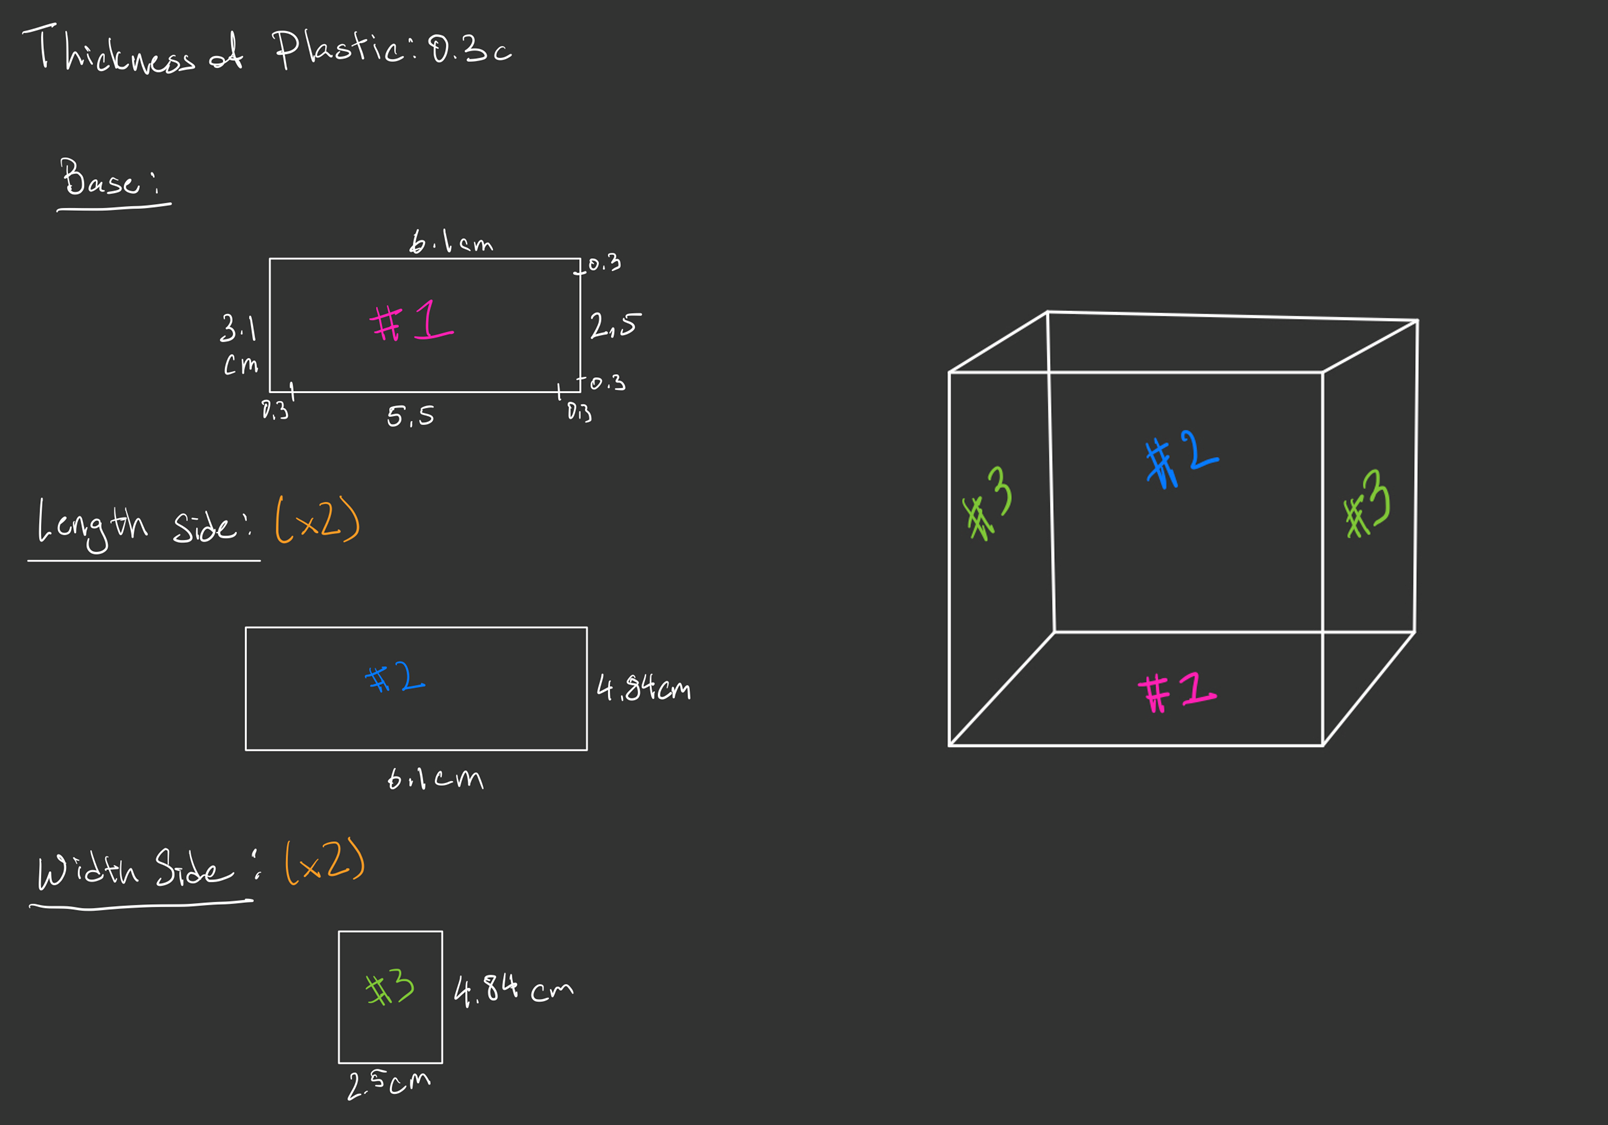 Thickness of Plastic: 0.3c
Base:
6.1cm
0.3
#1
3.1
cm
2.5
0.3
0.3
5.5
0.3
Length Side: (x2)
#2
4.84cm
6.1cm
Width Side: (x2)
#3
4.84 cm
2.5cm
#2
#3
#3
#1